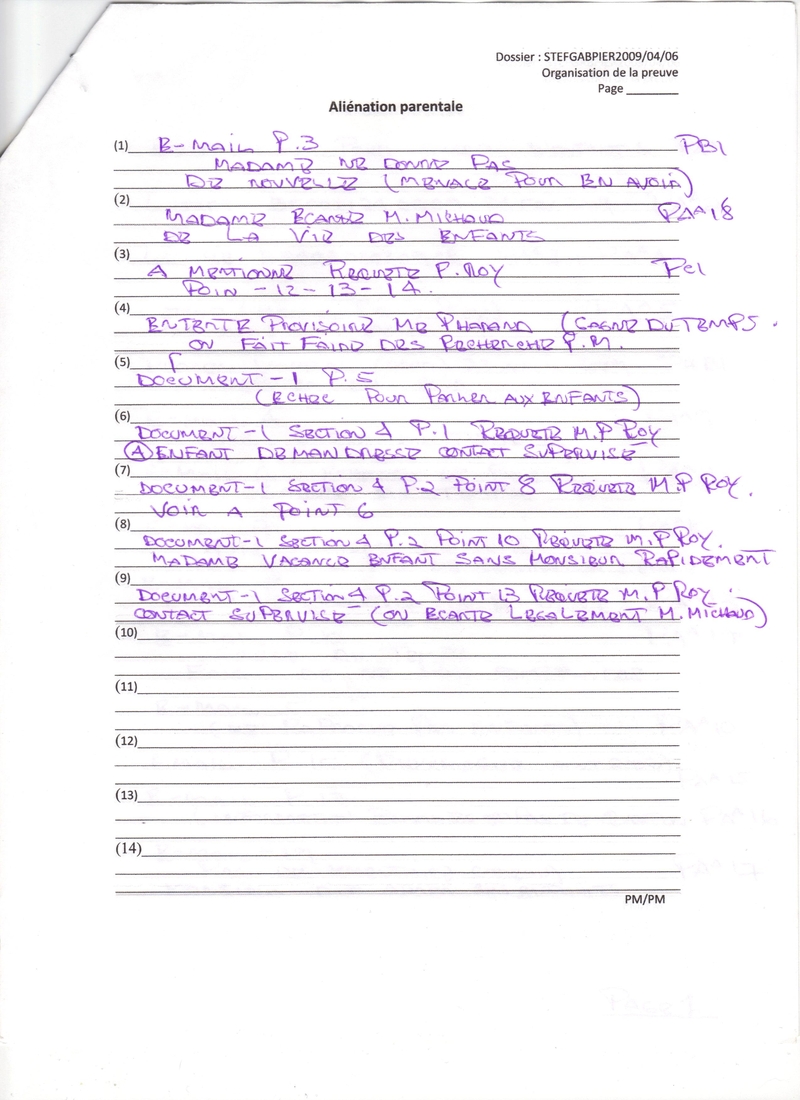 Dossier : STEFGABPIER2009/04/06
Organisation de la preuve
Page ________
Aliénation parentale
(1) E-MAIL P.3 PB1
MADAME NE DONNE PAS
DE NOUVELLE (MENACE POUR EN AVOIR)
(2)
MADAME ECARTE M. MICHAUD PAA18
DE LA VIE DES ENFANTS
(3)
A MENTIONNE REQUETE P. ROY PC1
POIN -12-13-14.
(4)
ENTENTE PROVISOIRE ME PHARAND (GAGNE DU TEMPS .
ON FAIT FAIRE DES RECHERCHE P.M.
(5)
DOCUMENT-1 P.5
(ECHEC POUR PARLER AUX ENFANTS)
(6)
DOCUMENT-1 SECTION 4 P.1 REQUETE M.P ROY
(A) ENFANT DEMANDRESSE CONTACT SUPERVISÉ
(7)
DOCUMENT-1 SECTION 4 P.2 POINT 8 REQUETE M.P ROY.
VOIR A POINT 6
(8)
DOCUMENT-1 SECTION 4 P.2 POINT 10 REQUETE M.P ROY.
MADAME VACANCE ENFANT SANS MONSIEUR RAPIDEMENT
(9)
DOCUMENT-1 SECTION 4 P.2 POINT 13 REQUETE M.P ROY.
CONTACT SUPERVISÉ (ON ECARTE LEGALEMENT M. MICHAUD)
(10)
(11)
(12)
(13)
(14)
PM/PM